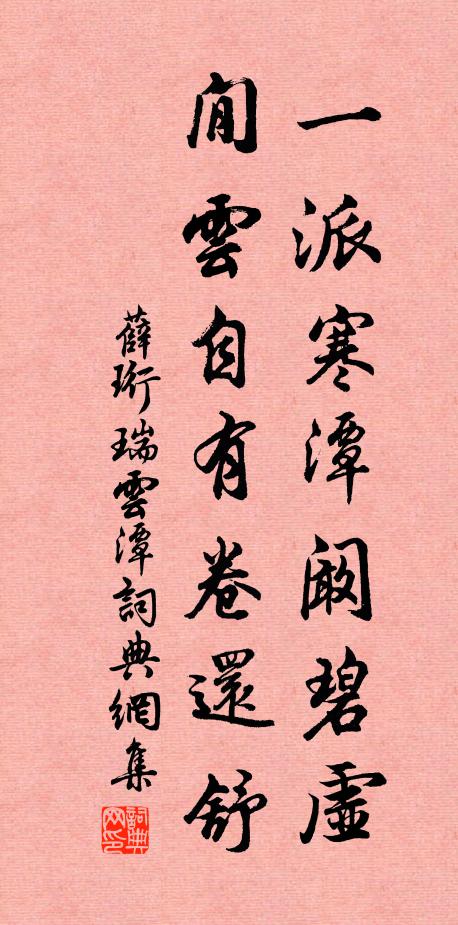 一派寒潭闞碧虛
閒雲自有卷還舒
薛珩瑞雲潭詞典網集
詞典
网印